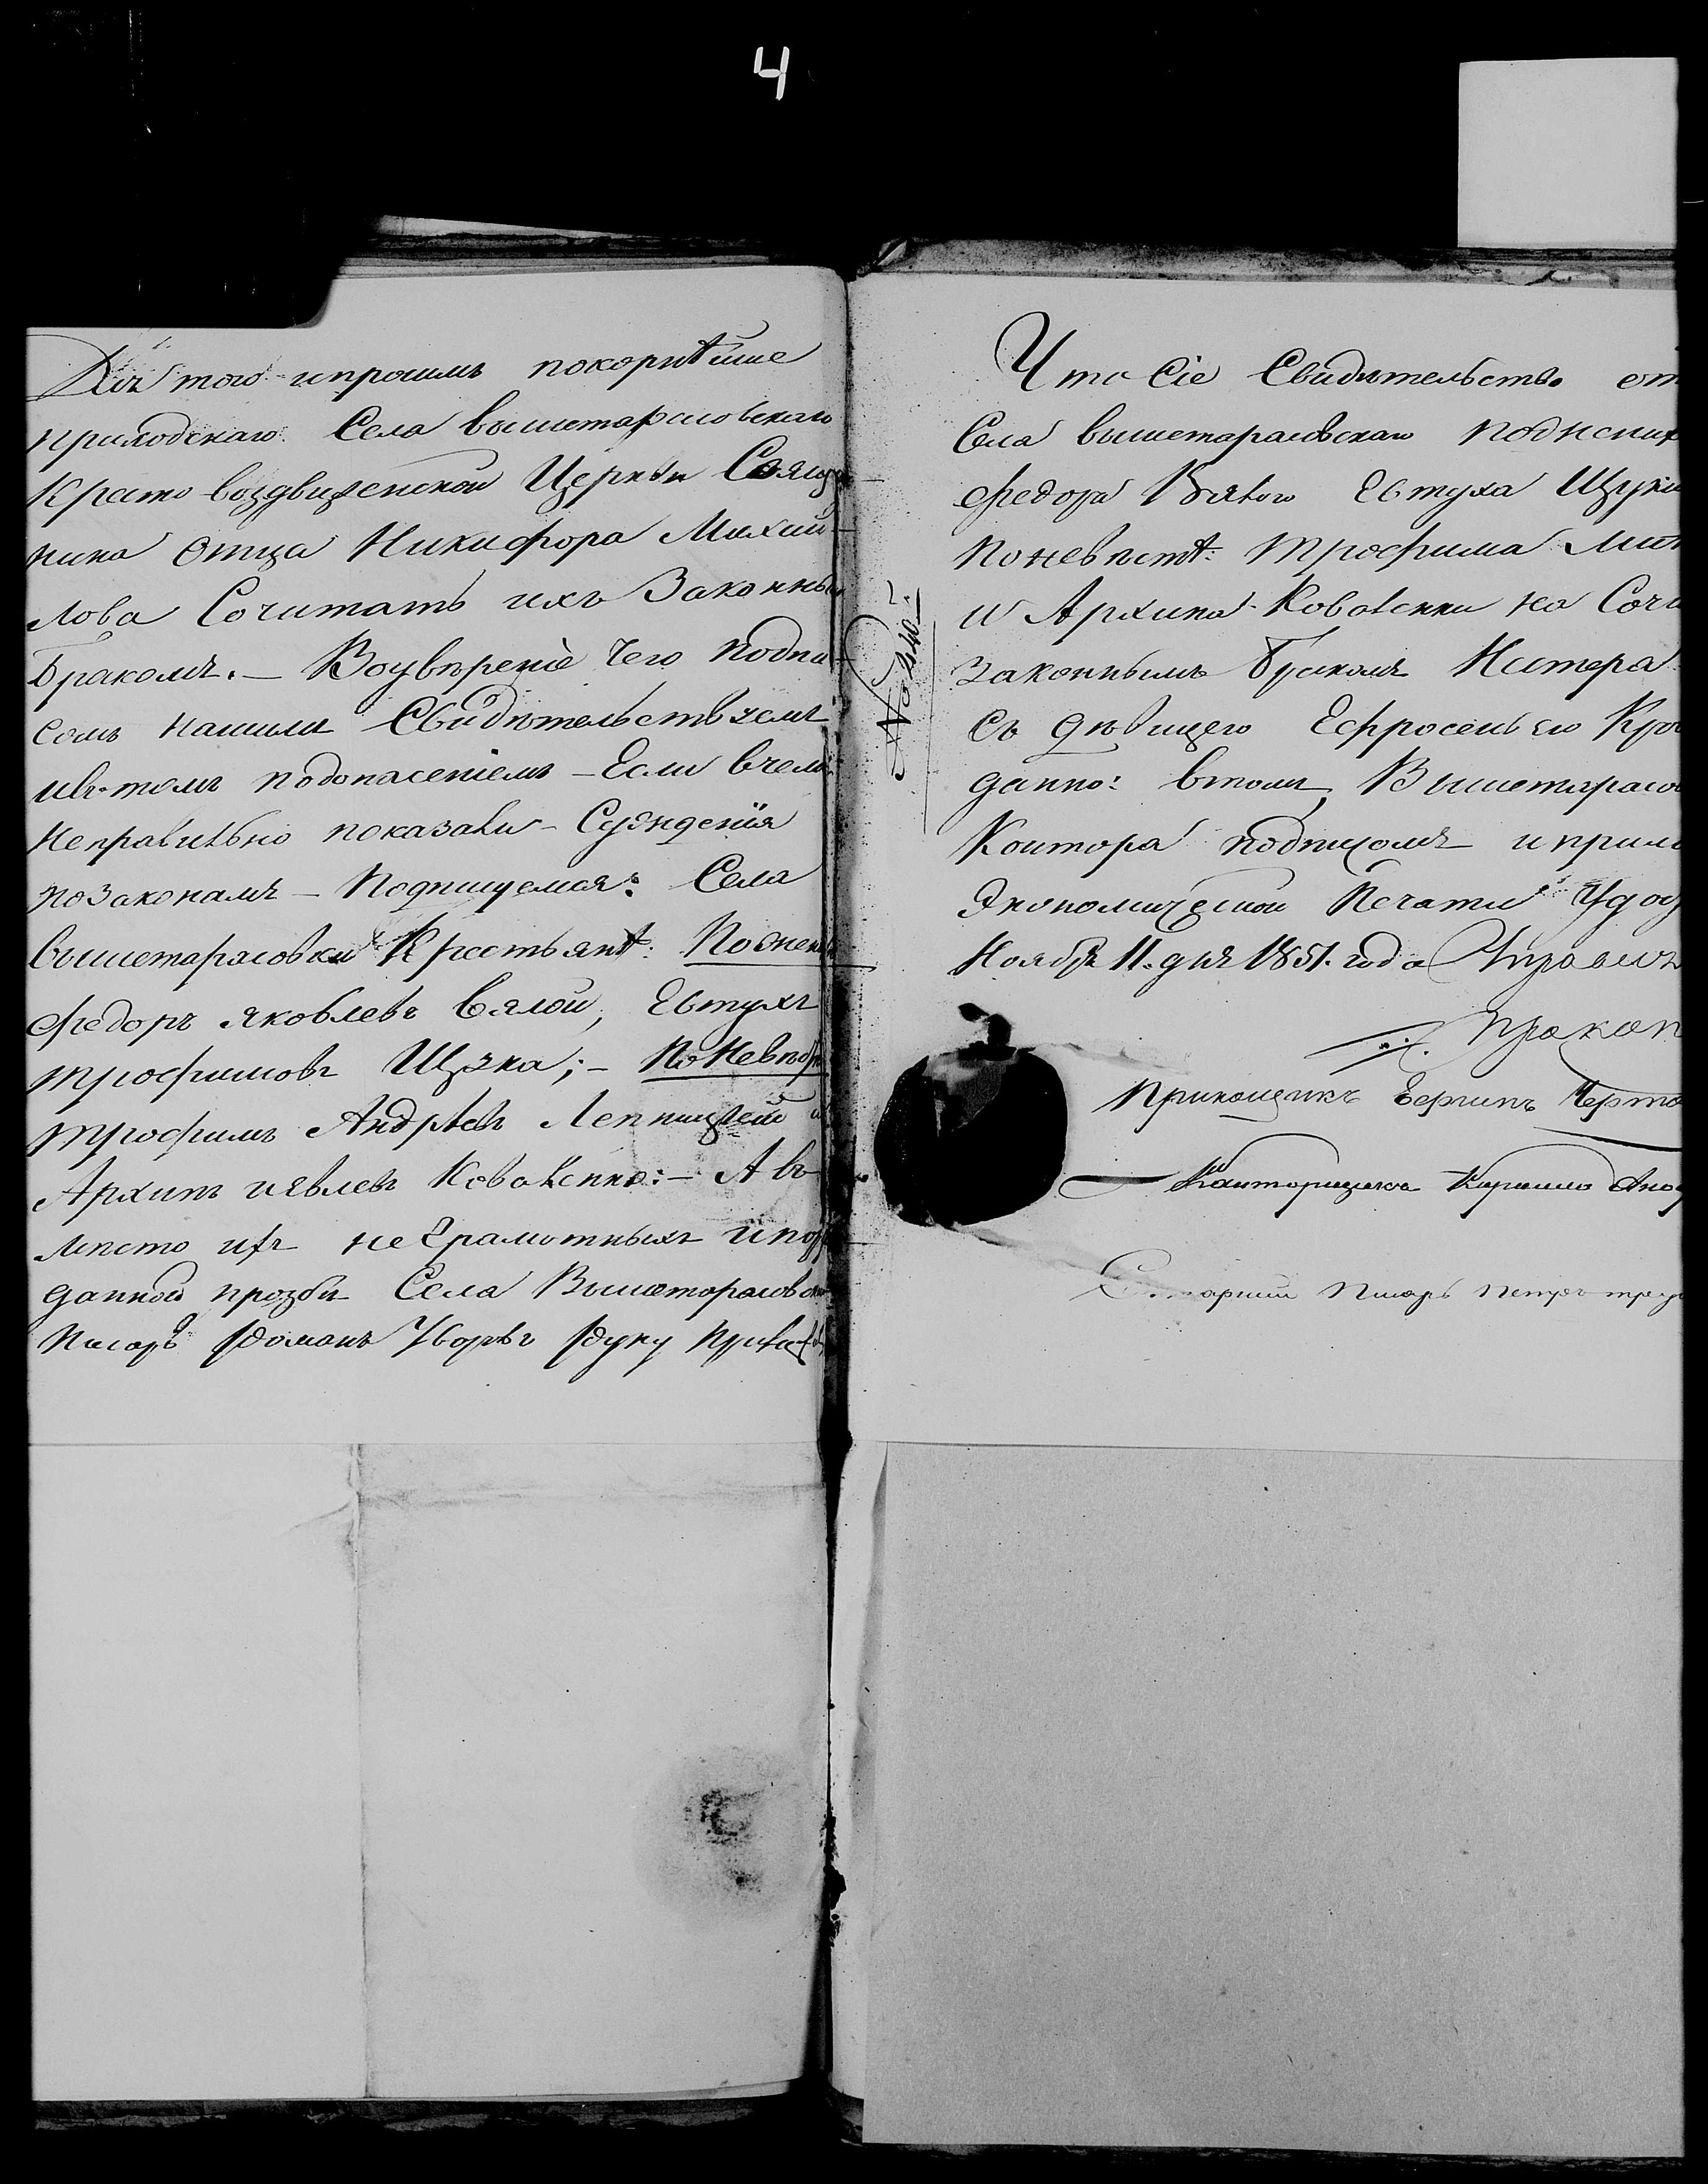 4
Для того ипросимъ покорнѣйше
приходскаго Села вышетарасовскаго
Кресто воздвиженской Церкви Свяще
ника Отца Никифора Михай
лова Сочитать ихъ Законны
Бракомъ. — Воувѣреніе Чего подпи
семъ нашимъ Свидѣтельствуемъ
ивътомъ подопасеніемъ — Если вчемъ
Неправильно показали — Сужденія
позаконамъ — Подпишемся: Села
вышетарасовки Крестьянѣ: Пожених
Федоръ Яковлевъ Вялой, Евтухъ
трофимовъ Щука; — По Невѣстѣ
трофимъ Андрѣевъ и
Архипъ Коваленко: — А въ
мѣсто ихъ неграмотныхъ ипо
данной прозби Села Вышетарасовки
Писарь Романъ Уворъвъ Руку прилож
№ 440
Что Сіе Свидѣтельство от
Села вышетарасовскаго поджених
Федора Вялого Евтуха Щуки
поневѣстѣ: трофима
и Архипа Коваленка на Сочи
Законнымъ Бракомъ Нестера
Съ дѣвицею Ефросеньею
данно: втомъ, Вышетарасов
Контора подписомъ иприло
Экономической Печати Удо
Ноября 11. дня 1851. года
Пракоп
Прикащикъ
Канторщикъ Кирило
Старший Писарь Петръ